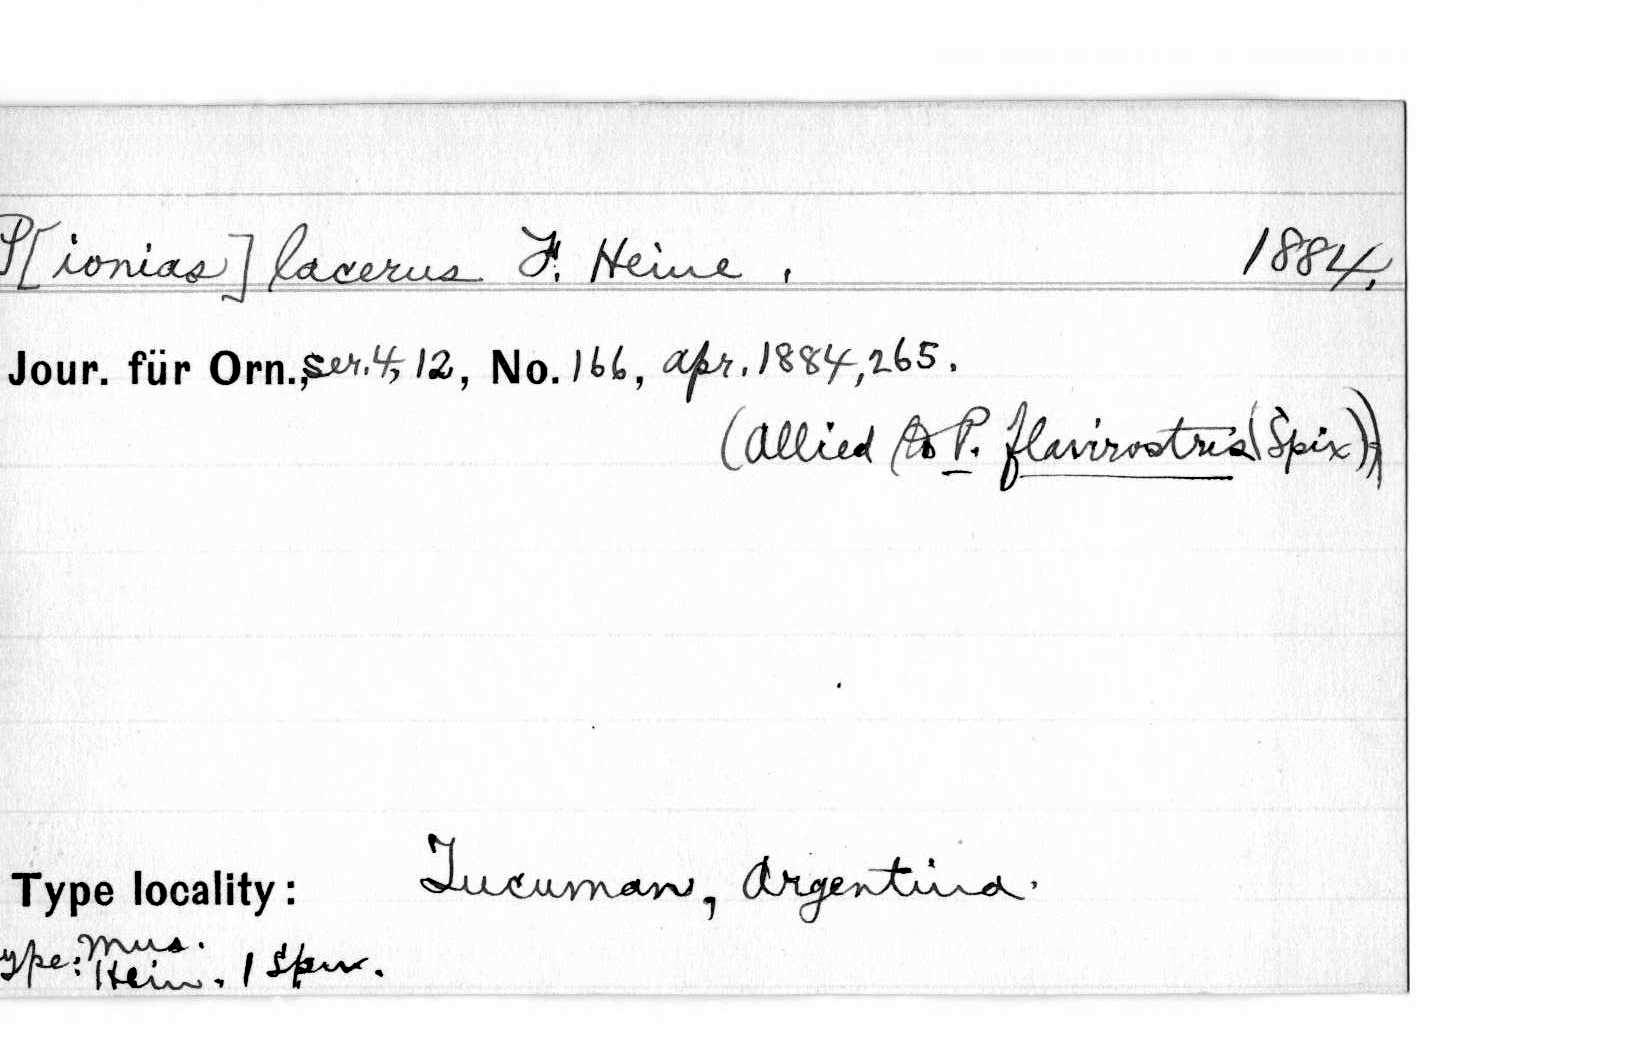 P[ionias] lacerus F. Heine, 1884,
Jour. für Orn., ser. 4, 12, No. 166, Apr. 1884, 265.
(Allied to P. flavirostris (Spix))
Type locality: Tucuman, Argentina.
ype: Mus.
Hein. 1 Spm.